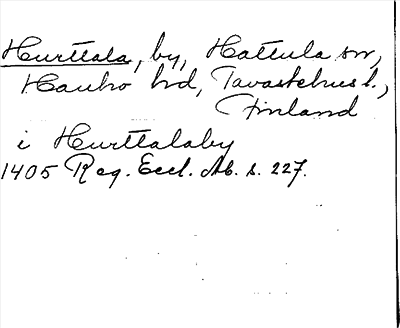 Hurttala, by, Hattula sn,
Hauho hd, Tavastehus l.,
Finland
i Hurttalaby
1405 Reg. Eccl. Ab. s. 227.